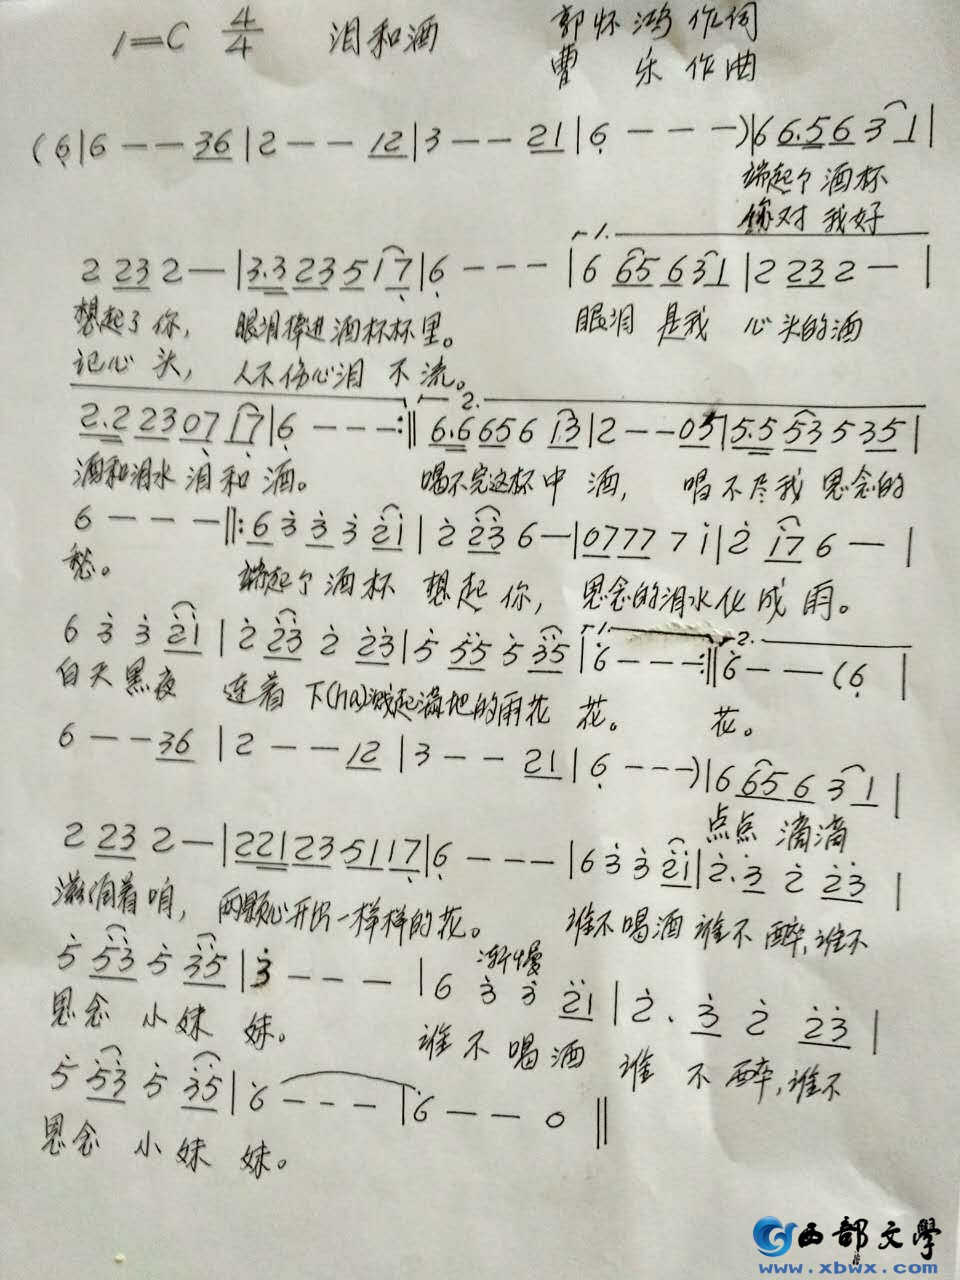 1=C 4/4 泪和酒 郭怀鸿作词
曹 乐 作曲
(6|6 - - 36|2 - - 12|3 - - 21|6 - - -)|6 6.5 6 3 1|
端起个酒杯
你对我好
2 23 2 - |3.3 23 5 17|6 - - - |6 65 6 31|2 23 2 - |
想起了你， 眼泪掉进酒杯杯里。 眼泪 是我 心头的酒
记心头， 人不伤心泪 不流。
2.2 23 07 17|6 - - - :‖ 6.6 65 6 13|2 - - 05|5.5 53 5 35|
酒和泪水 泪和酒。 喝不完这杯中酒， 唱不尽我思念的
6 - - - ‖: 6 3 3 3 21|2 23 6 - |07 77 7 1|2 17 6 - |
愁。 端起个酒杯 想起你， 思念的泪水化成雨。
6 3 3 21|2 23 2 23|5 55 5 35|6 - - - :‖6 - - (6 |
白天黑夜 连着 下(ha)溅起满地的雨花 花。 花。
6 - - 36|2 - - 12|3 - - 21|6 - - -)|6 65 6 3 1|
点点 滴滴
2 23 2 - |221 23 51 17|6 - - - |6 3 3 21|2. 3 2 23|
滋润着咱， 两颗心开出一样样的花。 谁不喝酒谁不醉,谁不
5 53 5 35|3 - - - |6 3 3 21|2. 3 2 23|
渐慢
思念 小妹 妹。 谁不喝酒 谁 不 醉,谁不
5 53 5 35|6 - - - |6 - - 0‖
思念 小妹 妹。
西部文學
www.xbwx.com